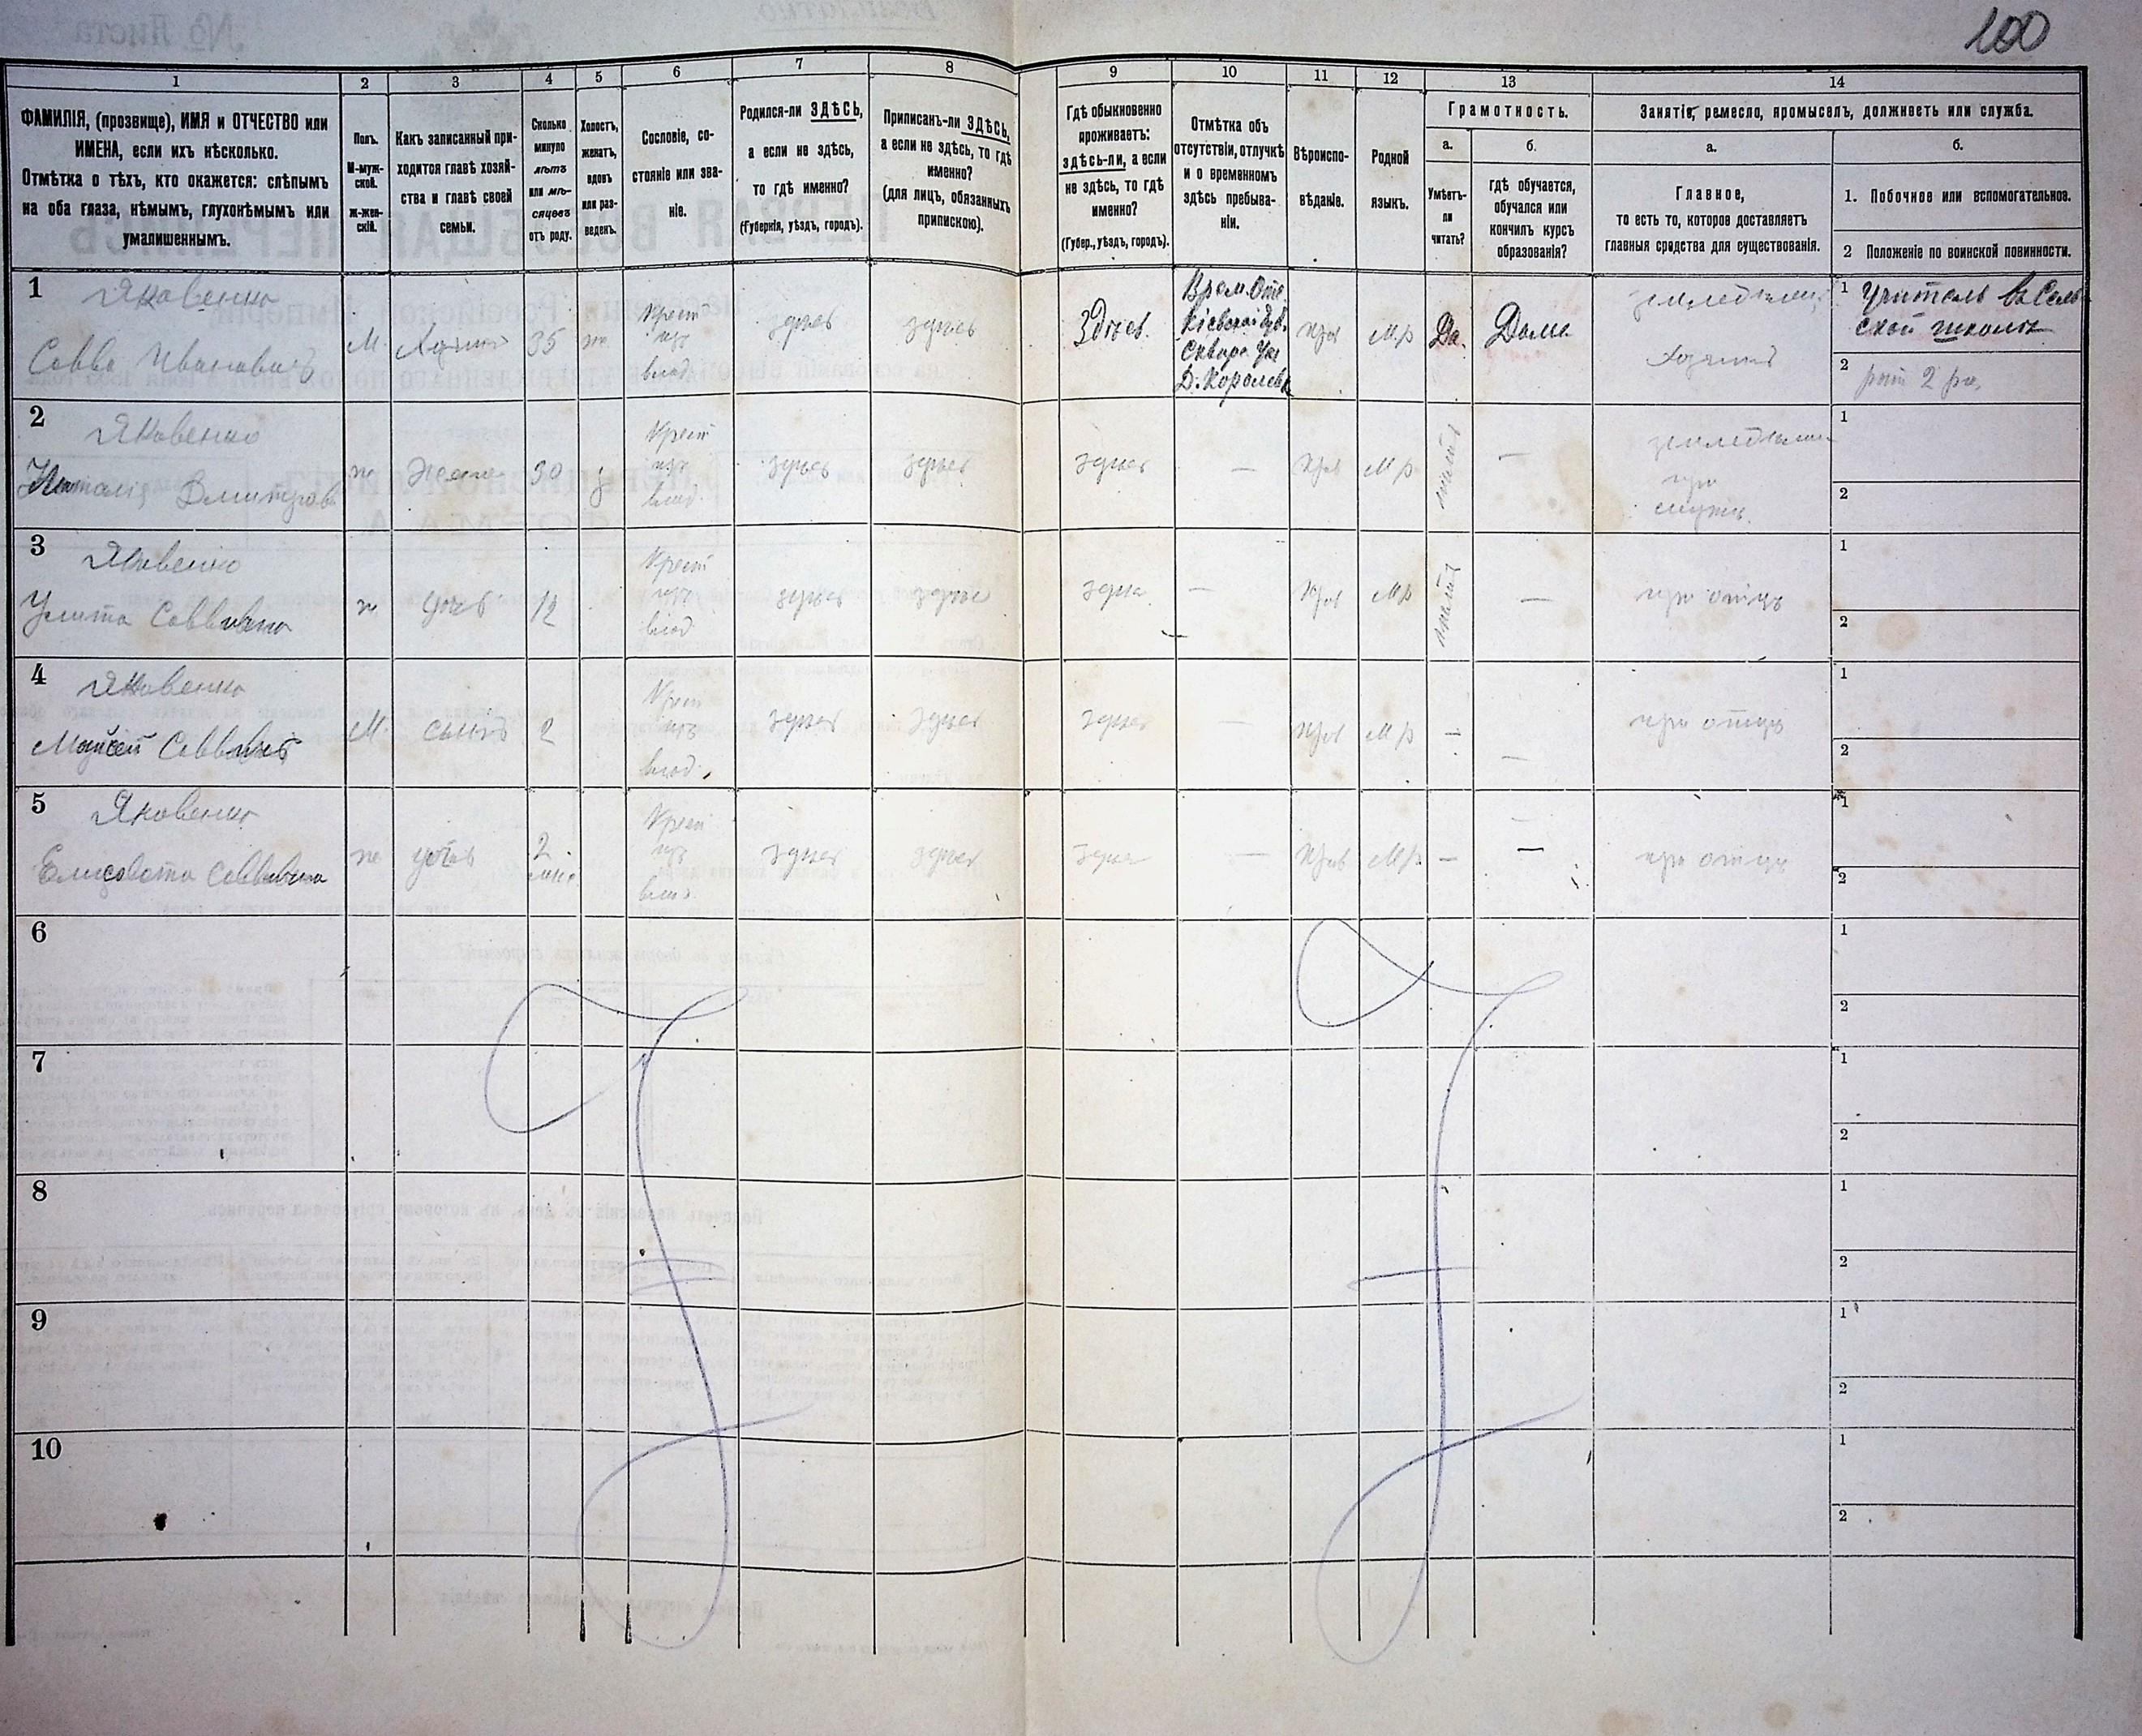 100
1 2 3 4 5 6 7 8 9 10 11 12 13 14
ФАМИЛІЯ, (прозвище), ИМЯ и ОТЧЕСТВО или
ИМЕНА, если ихъ нѣсколько.
Отмѣтка о тѣхъ, кто окажется: слѣпымъ
на оба глаза, нѣмымъ, глухонѣмымъ или
умалишеннымъ.
Полъ.
М-муж-
ской.
ж-жен-
скій.
Какъ записанный при-
ходится главѣ хозяй-
ства и главѣ своей
семьи.
Сколько
минуло
лѣтъ
или мѣ-
сяцевъ
отъ роду.
Холостъ,
женатъ,
вдовъ
или раз-
веденъ.
Сословіе, со-
стояніе или зва-
ніе.
Родился-ли ЗДѢСЬ,
а если не здѣсь,
то гдѣ именно?
(Губернія, уѣздъ, городъ).
Приписанъ-ли ЗДѢСЬ,
а если не здѣсь, то гдѣ
именно?
(для лицъ, обязанныхъ
припискою).
Гдѣ обыкновенно
проживаетъ:
здѣсь-ли, а если
не здѣсь, то гдѣ
именно?
(Губер., уѣздъ, городъ).
Отмѣтка объ
отсутствіи, отлучкѣ
и о временномъ
здѣсь пребыва-
ніи.
Вѣроиспо-
вѣданіе.
Родной
языкъ.
Грамотность.
а.
Умѣетъ-
ли
читать?
б.
гдѣ обучается,
обучался или
кончилъ курсъ
образованія?
Занятія, ремесло, промыселъ, должность или служба.
а.
Главное,
то есть то, которое доставляетъ
главныя средства для существованія.
б.
1. Побочное или вспомогательное.
2 Положеніе по воинской повинности.
1
Яковенко
Савва Ивановичъ
М.
Хозяинъ
35
ж
Крест
изъ
влад.
здѣсь
здѣсь
Здѣсь.
Врем. Отс.
Кіевской Губ.
Сквир. Уѣз
Д. Королевк
Прав
М.р
Да.
Дома
земледѣлец
Хозяинъ
1 Учитель въ Сель-
ской школѣ
2
2
Яковенко
Наталія Дмитров
ж
Жена
30
з
Крест
изъ
влад.
здѣсь
здѣсь
здѣсь
—
Прав
М р
—
земледѣлец
при
мужѣ.
1
2
3
Яковенко
Улита Саввична
ж
дочь
12
Крест
изъ
влад
здѣсь
здѣсь
здѣсь
—
Прав
М р
—
при отцѣ
1
2
4
Яковенко
Мойсей Саввичъ
М.
сынъ
2
Крест
изъ
влад.
здѣсь
здѣсь
здѣсь
—
Прав
М р
—
—
при отцѣ
1
2
5
Яковенко
Елисавета Саввична
ж
дочь
2
мѣс.
Крест
изъ
влад.
здѣсь
здѣсь
здѣсь
—
Прав
М р.
—
—
при отцѣ
1
2
6
1
2
7
1
2
8
1
2
9
1
2
10
1
2